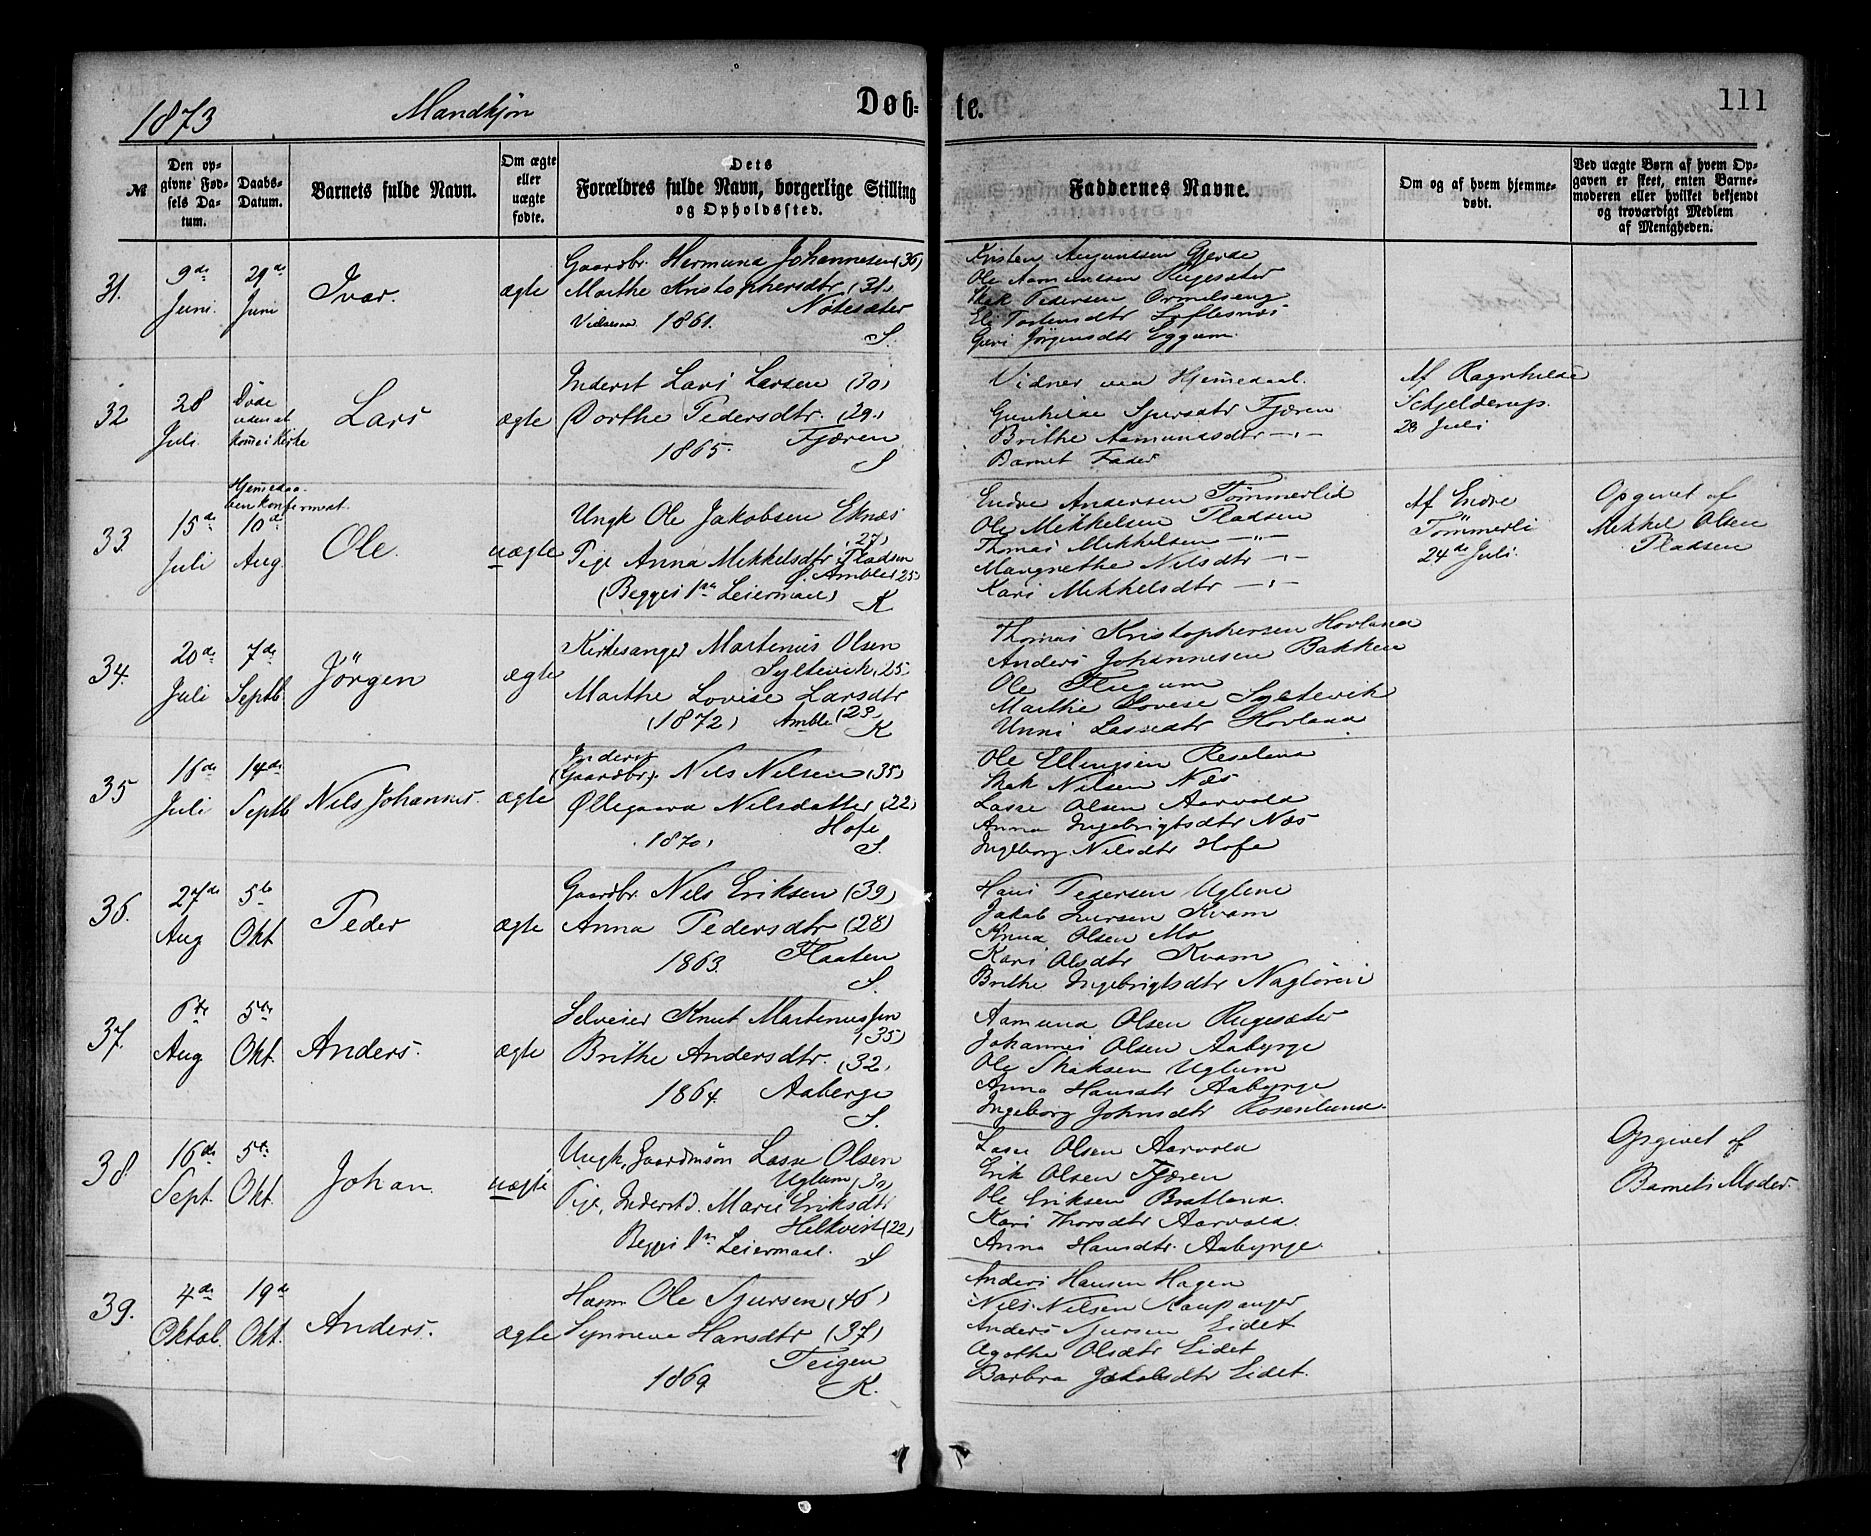 1873 Mandkjøn Døb- te. 111
№
Den opgivne Fødsels Datum.
Daabs-Datum.
Barnets fulde Navn.
Om ægte eller uægte fødte.
Dets Forældres fulde Navn, borgerlige Stilling og Opholdssted.
Faddernes Navne.
Om og af hvem hjemmedøbt.
Ved uægte Børn af hvem Opgaven er skeet, enten Barnemoderen eller hvilket bekjendt og troværdigt Medlem af Menigheden.
31. 9de Juni. 29de Juni Ivar. ægte
Gaardbr. Hermund Johannesen (36)
Marthe Kristophersdtr (31)
Nötesæter
1861.
S.
Kristen Aamundsen Gjerde
Ole Aamundsen Rugesæter
Skak Pedersen Ormelseng
Eli Tostensdtr Loftesnæs
Guri Jörgensdtr Eggum.
32 28 Juli. Döde uden at komme i Kirke Lars ægte
Inderst Lars Larsen (30)
Dorthe Pedersdtr. (29)
1865. Fjæren
S
Vidner ved Hjemedaab.
Gunhilde Sjursdtr Fjæren
Brithe Aamundsdtr —"—
Barnet Fader
Af Ragnhilde
Schjelderup.
28 Juli
33. 15de Juli Hjemedaaben konfirmert. 10de Aug. Ole. uægte
Ungk Ole Jakobsen Eknæs
(27)
Pige Anna Mikkelsdtr Pladsen
u. Amble (25)
(Begges 1ste Leiermaal) K
Endre Andersen Tömmerlid
Ole Mikkelsen Pladsen
Thomas Mikkelsen —"—
Margrethe Nilsdtr —"—
Kari Mikkelsdtr —"—
Af Endre
Tömmerli
24de Juli.
Opgivet af
Mikkel Olsen
Pladsen
34. 20de Juli 7de Septb Jörgen ægte
Kirkesanger Martenius Olsen
Syltevik (25
Marthe Lovise Larsdtr
(1872) Amble (23
K
Thomas Kristophersen Hovland
Anders Johannesen Bakken
Ole Flugum
Marthe Lovise Syltevik
Unni Lassedtr Hovland
35 18de Juli 14de Septb Nils Johannes. ægte
Inderst
(Gaardbr.) Nils Nilsen (35)
Øllegaard Nilsdatter (22)
Hofe
1870,
S.
Ole Ellingsen Roseland
Skak Nilsen Næs
Lasse Olsen Aarvold
Anna Ingebrigtsdtr Næs
Ingeborg Nilsdtr Hofe
36. 27de Aug 5te Okt Peder ægte
Gaardbr. Nils Eriksen (39)
Anna Pedersdtr (28)
1863. Flaaten
S.
Hans Pedersen Uglum
Jakob Iversen Kvam
Knud Olsen Mo
Kari Olsdtr Kvam
Brithe Ingebrigtsdtr Naglören
37. 6te Aug 5te Okt. Anders. ægte
Selveier Knut Martenussen
(35)
Brithe Andersdtr. (32)
1864. Aaberge
S.
Aamund Olsen Rugesæter
Johannes Olsen Aabyrge
Ole Skaksen Uglum
Anna Hansdtr Aabyrge
Ingeborg Johnsdtr Rosenlund.
38. 16de Sept. 5te Okt. Johan. uægte
Ungk, Gaardmsön Lasse Olsen
Uglum (30)
Pige, Inderstd. Marie Eriksdtr
Helkvist (22)
Begges 1ste Leiermaal. S
Lasse Olsen Aarvold
Erik Olsen Fjæren
Ole Eriksen Bratland.
Kari Thorsdtr Aarvold.
Anna Hansdtr. Aabyrge.
Opgivet af
Barnets Moder.
39. 4de Oktob. 19de Okt. Anders. ægte
Husm Ole Sjursen (46)
Synneva Hansdtr (37)
Teigen
1869 K.
Anders Hansen Hagen
Nils Nilsen Kaupanger
Anders Sjursen Eidet
Agathe Olsdtr Eidet
Barbra Jakobsdtr Eidet.